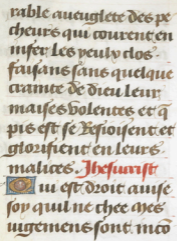 rable aueuglete des pe
cheurs qui courent en
infer les yeulx clos
faisans sans quelque
crainte de dieu leur
maises volentes et q̃
pis est se resioisent et
glorifient en leurs
malices. Jhesucrist
Qui est droit auise
soy quil ne chee mes
iugemens sont inco